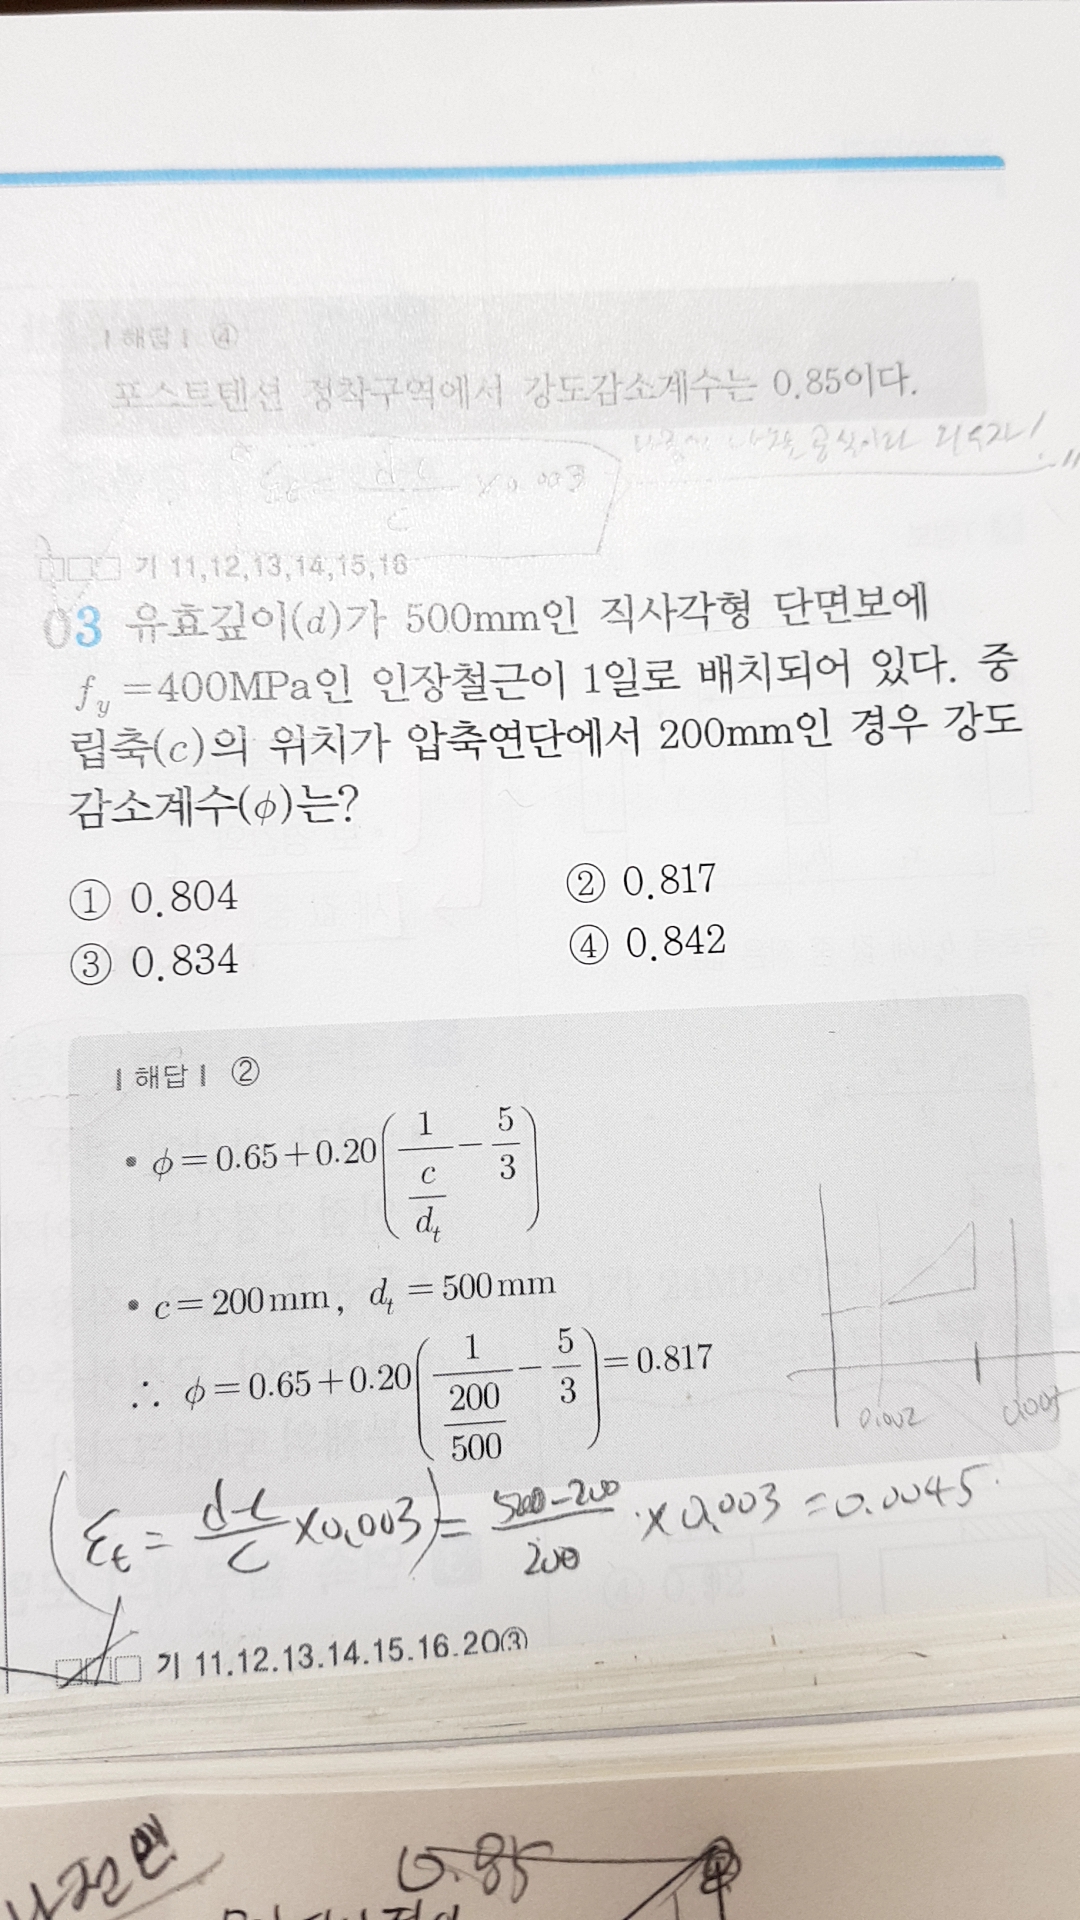 | 해답 | ④
포스트텐션 정착구역에서 강도감소계수는 0.85이다.
εt = d-c/c ×0.003
기 11,12,13,14,15,16
03 유효깊이(d)가 500mm인 직사각형 단면보에
f_y=400MPa인 인장철근이 1일로 배치되어 있다. 중
립축(c)의 위치가 압축연단에서 200mm인 경우 강도
감소계수(φ)는?
① 0.804 ② 0.817
③ 0.834 ④ 0.842
| 해답 | ②
• φ=0.65+0.20(1/(c/d_t) - 5/3)
• c=200mm, d_t=500mm
∴ φ=0.65+0.20(1/(200/500) - 5/3)=0.817
0.002
(εt = d-c/c ×0.003) = 500-200/200 ×0.003 = 0.0045
기 11.12.13.14.15.16.20③
0.85